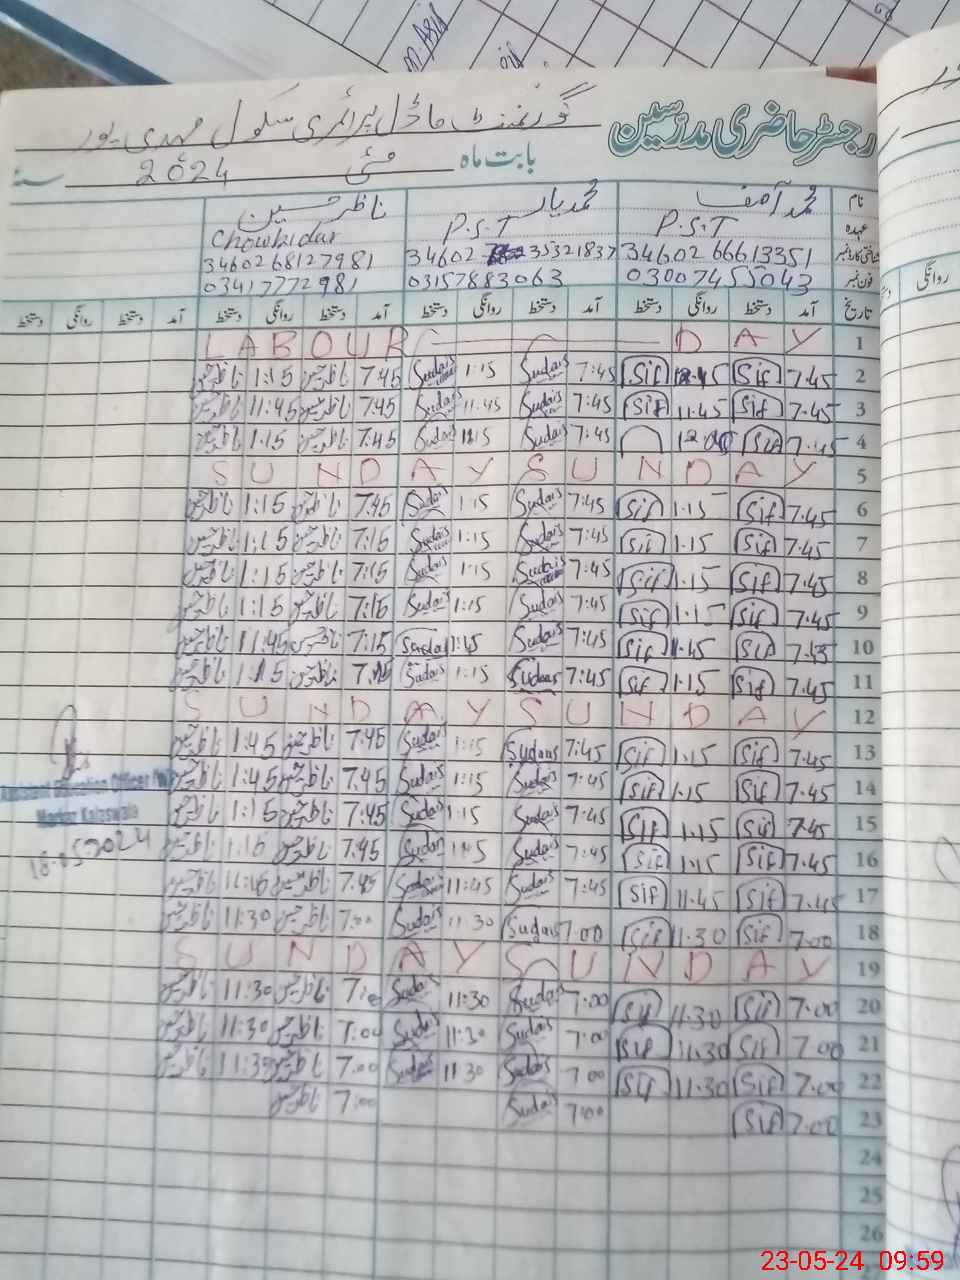 رجسٹر حاضری مدرسین گورنمنٹ ماڈل پرائمری سکول مہدی پور
بابت ماہ مئی 2024 سنہ
نام محمد آصف محمد یار ناظر حسین
عہدہ P.S.T P.S.T Chowkidar
شناختی کارڈ نمبر 34602 66613351 34602 35321837 3460268127981
فون نمبر 03007455043 03157883063 03417772981
تاریخ آمد دستخط روانگی دستخط آمد دستخط روانگی دستخط آمد دستخط روانگی دستخط آمد دستخط روانگی دستخط
1 LABOUR DAY
2 7.45 Sif Sif 7:45 Sudais 1:15 Sudais 7.45 ناظر حسین 1:15 ناظر حسین
3 7.45 Sif 11.45 Sif 7:45 Sudais 11.45 Sudais 7.45 ناظر حسین 11.45 ناظر حسین
4 7.45 Sif 7:45 Sudais Sudais 7.45 ناظر حسین 1.15 ناظر حسین
5 SUNDAY SUNDAY
6 7.45 Sif 1.15 Sif 7:45 Sudais 1:15 Sudais 7.45 ناظر حسین 1:15 ناظر حسین
7 7.45 Sif 1.15 Sif 7:45 Sudais 1:15 Sudais 7:15 ناظر حسین 1:15 ناظر حسین
8 7.45 Sif 1.15 Sif 7:45 Sudais 1:15 Sudais 7:15 ناظر حسین 1:15 ناظر حسین
9 7.45 Sif 1.15 Sif 7:45 Sudais 1:15 Sudais 7:15 ناظر حسین 1:15 ناظر حسین
10 Sif Sif 7:45 Sudais Sudais 7:15 ناظر حسین 11:45 ناظر حسین
11 7.45 Sif 1.15 Sif 7:45 Sudais 1:15 Sudais ناظر حسین 1:15 ناظر حسین
12 SUNDAY SUNDAY
13 7.45 Sif 1.15 Sif 7:45 Sudais 1:15 Sudais 7.45 ناظر حسین 1:45 ناظر حسین
14 7.45 Sif 1.15 Sif 7:45 Sudais 1:15 Sudais 7.45 ناظر حسین 1:45 ناظر حسین
15 7.45 Sif 1.15 Sif 7:45 Sudais 1:15 Sudais 7.45 ناظر حسین 1:15 ناظر حسین
16 7.45 Sif 1.15 Sif 7:45 Sudais Sudais 7.45 ناظر حسین 1:15 ناظر حسین
17 7.45 Sif 11.45 Sif 7:45 Sudais 11:45 Sudais 7.45 ناظر حسین ناظر حسین
18 7.00 Sif 11.30 Sif 7:00 Sudais 11:30 Sudais 7:00 ناظر حسین 11:30 ناظر حسین
19 SUNDAY SUNDAY
20 7.00 Sif 11.30 Sif 7:00 Sudais 11:30 Sudais 7:00 ناظر حسین 11:30 ناظر حسین
21 7.00 Sif 11.30 Sif 7:00 Sudais 11:30 Sudais 7:00 ناظر حسین 11:30 ناظر حسین
22 7.00 Sif 11.30 Sif 7:00 Sudais 11:30 Sudais 7:00 ناظر حسین 11:30 ناظر حسین
23 7.00 Sif 7:00 Sudais 7:00 ناظر حسین
24
25
26
Assistant Education Officer
Markaz Kalaswala
23-05-24 09:59